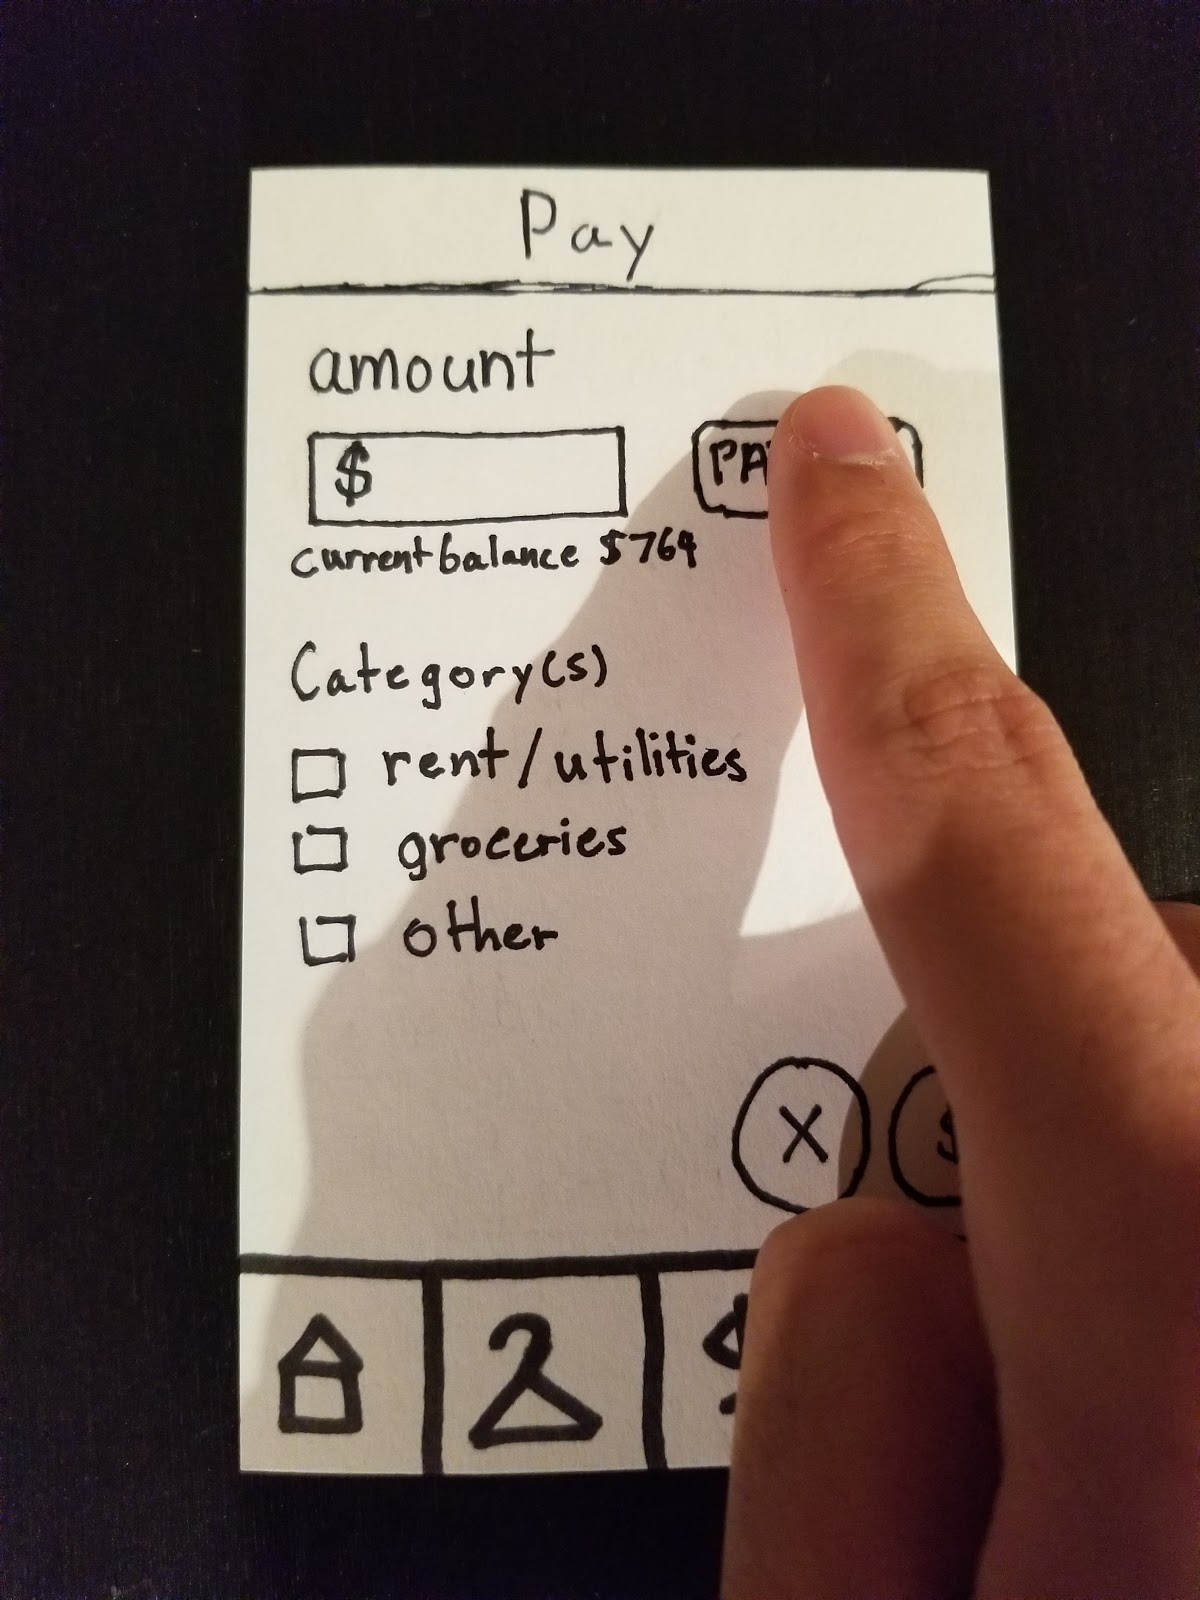 Pay
amount
$
current balance $764
Category(s)
rent/utilities
groceries
other
X